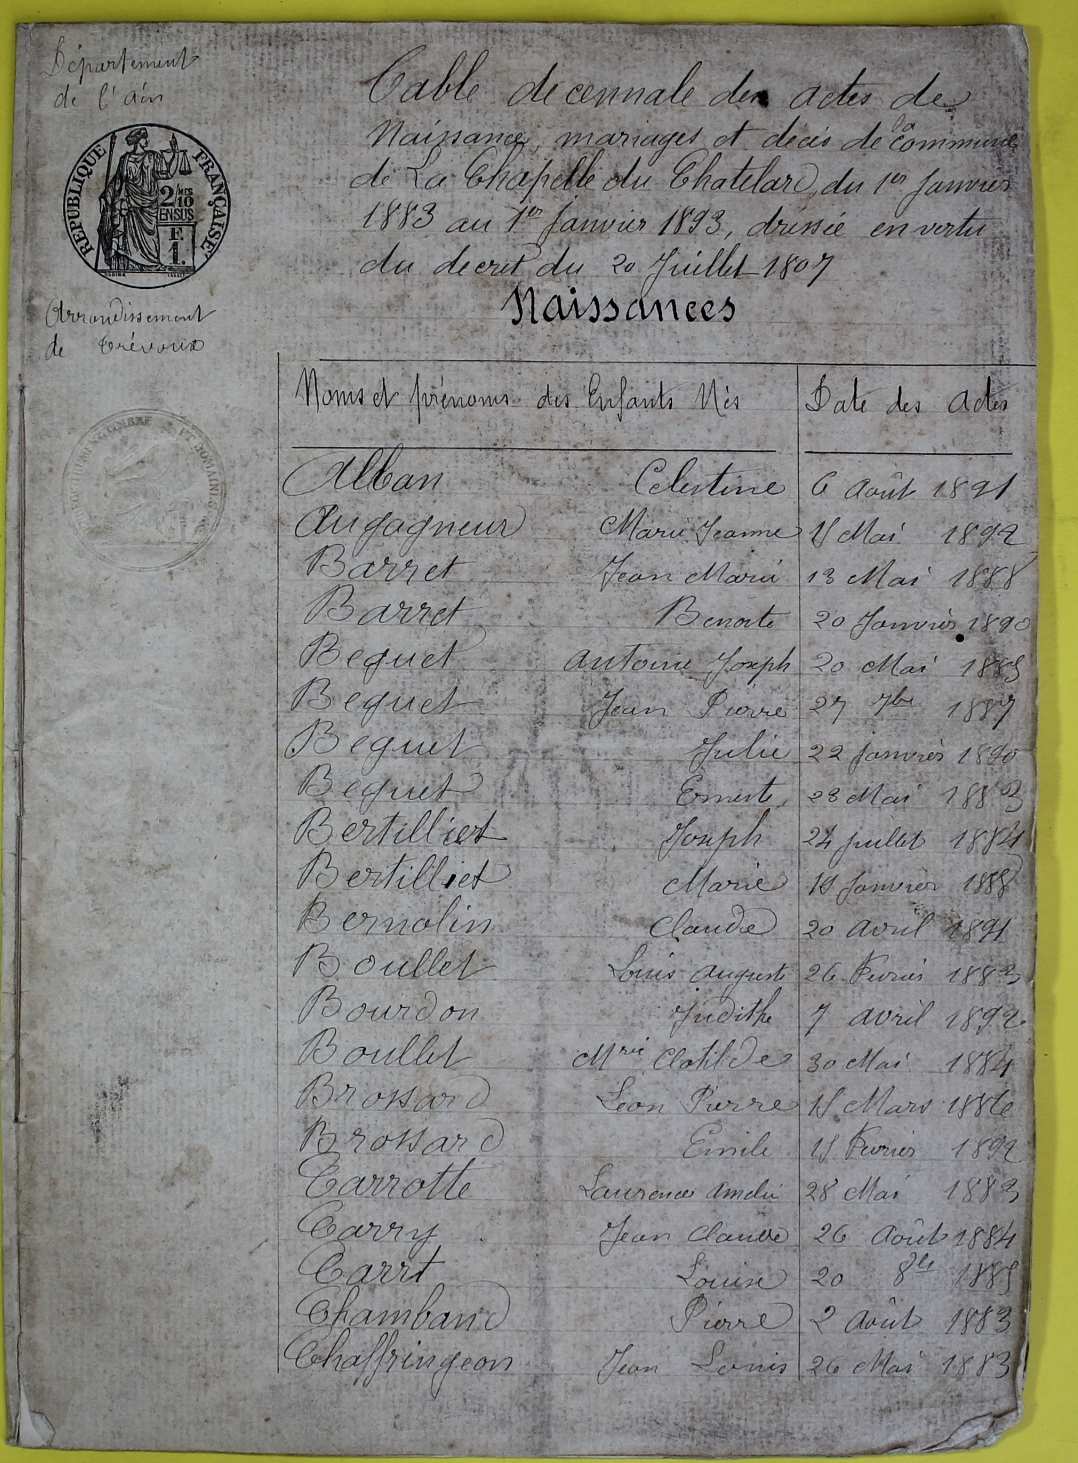 Département
de l'ain
RÉPUBLIQUE FRANÇAISE
2/10
EN SUS
F
1.
Arrondissement
de Trévoux
Table decennale des actes de
Naissances, mariages et décès de la commune
de La Chapelle du Chatelard, du 1er Janvier
1883 au 1er Janvier 1893, dressée en vertu
du decret du 20 Juillet 1807
Naissances
Noms et prénoms des Enfants Nés Date des Actes
Alban Celestine 6 Août 1891
Augagneur Marie Jeanne 15 Mai 1892
Barret Jean Marie 13 Mai 1888
Barret Benoite 20 Janvier 1890
Beguet Antoine Joseph 20 Mai 1885
Beguet Jean Pierre 27 7bre 1887
Beguet Julie 22 janvier 1890
Beguet Erneste 23 Mai 1883
Bertilliet Joseph 24 juillet 1884
Bertilliet Marie 15 Janvier 1888
Bernolin Claude 20 avril 1891
Boullet Louis auguste 26 Fevrier 1883
Bourdon Judithe 7 avril 1892
Boullet Mrie Clotilde 30 Mai 1884
Brossard Léon Pierre 15 Mars 1886
Brossard Emile 15 Fevrier 1892
Carrotte Laurence Amelie 28 Mai 1883
Carry Jean Claude 26 Août 1884
Carrt Louise 20 8bre 1885
Chamband Pierre 2 Août 1883
Chaffringeon Jean Louis 26 Mai 1883